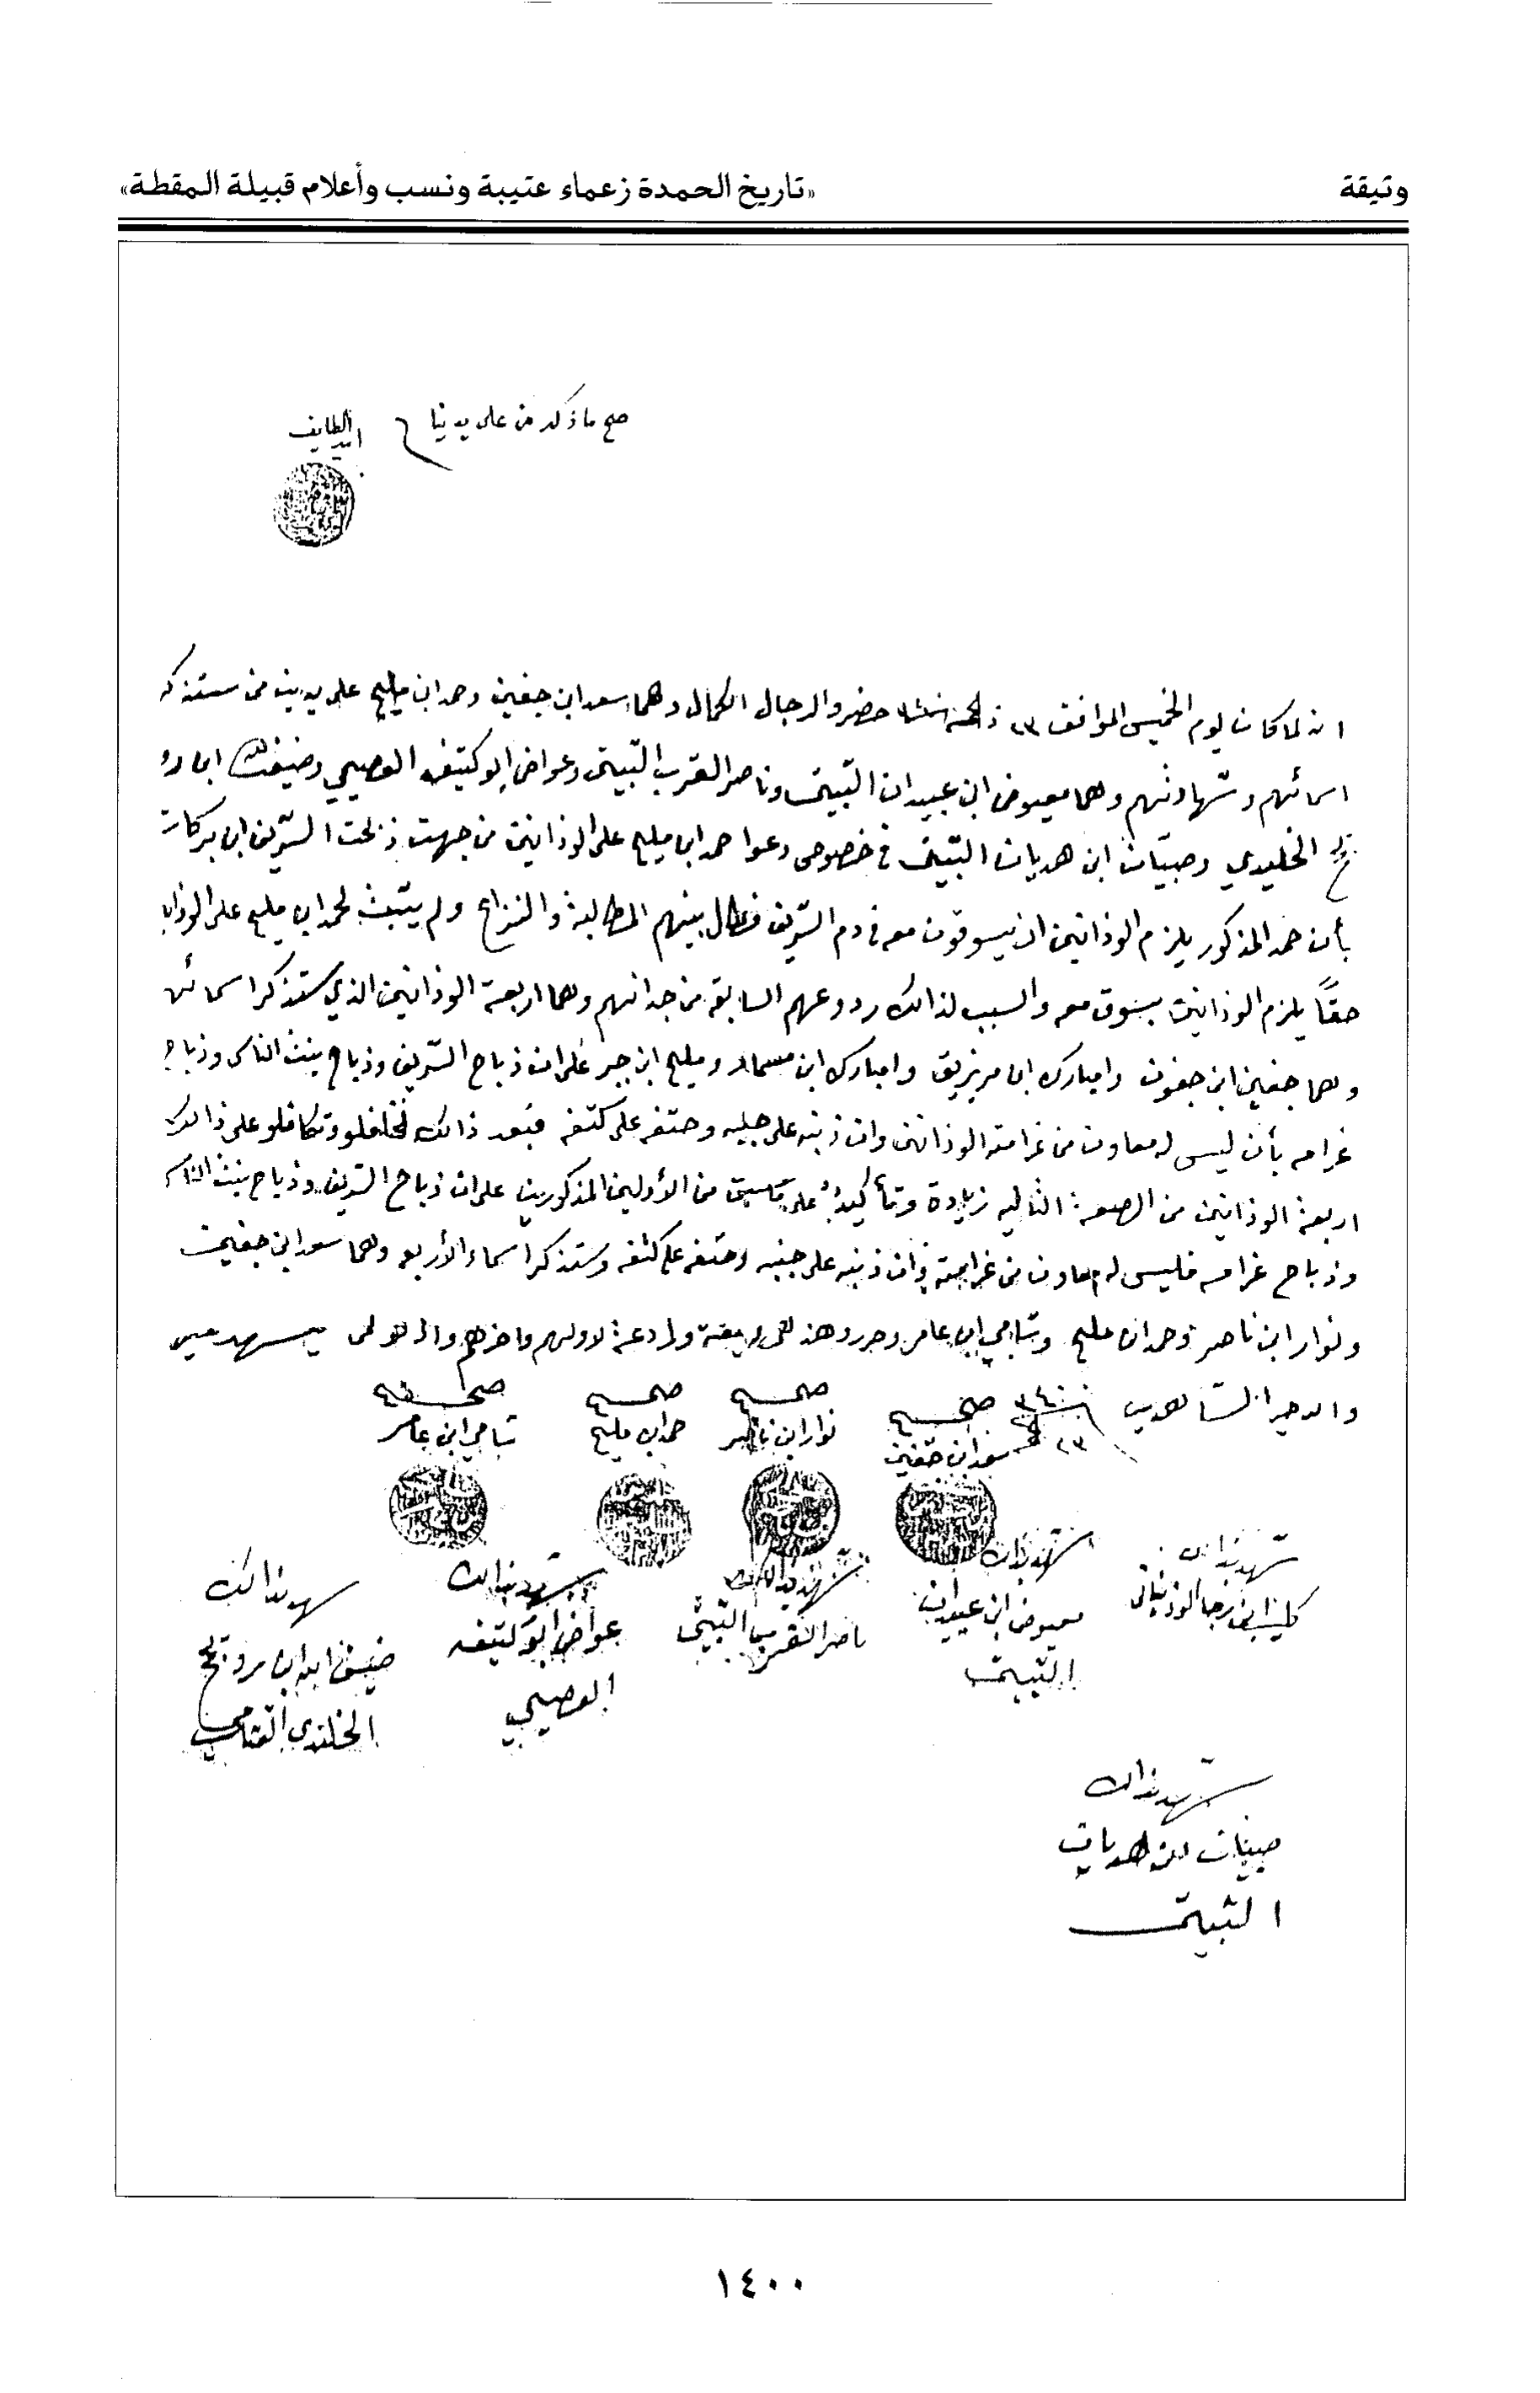 وثيقة
«تاريخ الحمدة زعماء عتيبة ونسب وأعلام قبيلة المقطة»
صح ما ذكر من على يدينا
امير الطايف
انه لما كان يوم الخميس الموافق ٢٣ ذ الحجه حضرو الرجال الكمال وهما سعد ابن جفين وحمد ابن مليح على يدين من ستذكر
اسمائهم وشهادتهم وهما معيوض ابن عبيدان الثبيتي وناصر القرب الثبيتي وعواض ابو كتيفه العصيمي وضيف الله ابن رو
يج الخليدي وصبيان ابن هديان الثبيتي في خصوص دعوا حمد ابن مليح على الوذانين من جهت ذبحت الشريف ابن بركات
بأن حمد المذكور يلزم الوذانين ان يسوقون معه في دم الشريف فطال بينهم المطالبة والنزاع ولم يثبت لحمد ابن مليح على الوذانا
حقاً يلزم الوذانين بسوق معه والسبب لذالك ردوعهم السابقه من جدانهم وهما اربعة الوذانين الذي ستذكر اسمائهم
وهما جفين ابن جفون وامبارك ابن مريزيق وامبارك ابن مسمار ومليح ابن جبر على ان ذباح الشريف وذباح بنت الناس وذباح
غرامه بأن ليس له معاون من غرامته الوذانين وان ذنبه على جنبه وحتفه على كتفه فبعد ذالك تخالفلو وتكافلو على ذالك
اربعة الوذانين من الصوره التاليه زيادة وتأكيداً على ماسبق من الأولين المذكورين على ان ذباح الشريف وذباح بنت الناس
وذباح غرامه فليس له معاون من غرامته وان ذنبه على جنبه وحتفه على كتفه وستذكر اسماء الأربعه وهما سعد ابن جفين
ونوار ابن ناصر وحمد ابن مليح وشامي ابن عامر وحررو هذه ورادعة لاولهم واخرهم والله المولى
والله خير الشاهدين ٢٣ ١٣٤٠
صحيح صحيح صحيح صحيح
سعد ابن جفين نوار ابن ناصر حمد ابن مليح شامي ابن عامر
شهد بذالك شهد بذالك شهد بذالك شهد بذالك شهد بذالك
ابن رجا الوذناني معيوض ابن عبيدان ناصر القرب الثبيتي عواض ابو كتيفه ضيف الله ابن رويج
الثبيتي العصيمي الخليدي القثامي
شهد بذالك
صبيان ابن هديان
الثبيتي
١٤٠٠